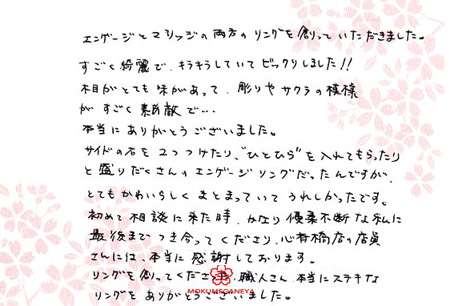 エンゲージとマリッジの両方のリングを創っていただきました。
すごく綺麗で、キラキラしていてビックリしました!!
木目がとても味があって、彫りやサクラの模様
がすごく素敵で…
本当にありがとうございました。
サイドの石を2つつけたり、"ひとひら"を入れてもらったり
と盛りだくさんのエンゲージリングだったんですが、
とてもかわいらしくまとまっていてうれしかったです。
初めて相談に来た時、かなり優柔不断な私に
最後までつき合ってくださり、心斎橋店の店員
さんには、本当に感謝しております。
リングを創ってくださった職人さん本当にステキな
MOKUMEGANEYA
リングをありがとうございました。